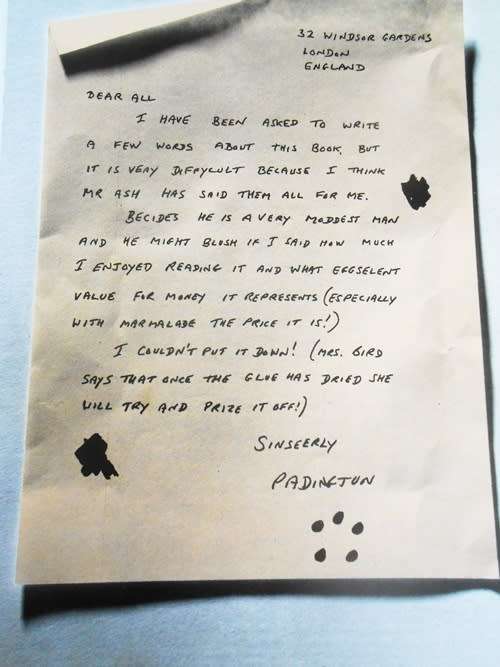 32 WINDSOR GARDENS
LONDON
ENGLAND
DEAR ALL
I HAVE BEEN ASKED TO WRITE
A FEW WORDS ABOUT THIS BOOK, BUT
IT IS VERY DIFFYCULT BECAUSE I THINK
MR ASH HAS SAID THEM ALL FOR ME.
BECIDES HE IS A VERY MODDEST MAN
AND HE MIGHT BLUSH IF I SAID HOW MUCH
I ENJOYED READING IT AND WHAT EGGSELENT
VALUE FOR MONEY IT REPRESENTS (ESPECIALLY
WITH MARMALADE THE PRICE IT IS!)
I COULDN'T PUT IT DOWN! (MRS. BIRD
SAYS THAT ONCE THE GLUE HAS DRIED SHE
WILL TRY AND PRIZE IT OFF!)
SINSEERLY
PADINGTUN